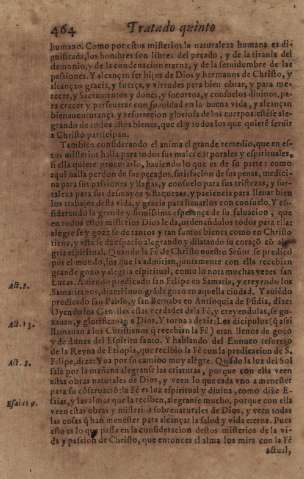 464 Tratado quinto
humano. Como por estos misterios la naturaleza humana es di-
gnificada, los hombres son libres del pecado, y de la tirania del
demonio, y de la condenacion eterna, y de la seruidumbre de las
passiones. Y alcançan ser hijos de Dios y hermanos de Christo, y
alcançan gracia, y fuerça, y virtudes para bien obrar, y para me-
recer, y Sacramentos y dones, y socorros, y consuelos diuinos, pa-
ra crecer y perseuerar con en la buena vida, y alcançan
bienauenturança y resurrecion gloriosa de los cuerpos. estase ale-
grando de todos estos bienes, que el y todos los que quisieren seruir
a Christo participan.
Tambien considerando el anima el grande remedio, que en es-
tos misterios halla para todos sus males corporales y espirituales,
si ella quiere procurarlo, haziendo lo que es de su parte: como
aqui halla perdon de sus pecados, satisfacion de sus penas, medici-
na para sus passiones y llagas, y consuelo para sus tristezas, y for-
taleza para sus desmayos y flaquezas, y paciencia para lleuar bien
los trabajos desta vida, y gracia para lleuarlos con consuelo. Y co-
siderando la grande y de su saluacion, que
en todos estos misterios Dios le da, ordenandolos todos para ella;
alegrase y goza se de tantos y tan santos bienes como en Christo
tiene, y estase de espacio alegrando y dilatando su coraçõ cõ ale-
gria espiritual. Quando la Fè de Christo nuestro Señor se predicò
por el mundo, los que la admitian, juntamente con ella recebian
grande gozo y alegria espiritual, como lo nota muchas vezes san
Lucas. Auiendo predicado san Felipe en Samaria, y creyendo los
Samaritanos, dize: Huuo grande gozo en aquella ciudad. Y auiẽdo
predicado san Pablo, y san Bernabe en Antioquia de Psidia, dize:
Oyendo los Gentiles estas verdades de la Fè, y creyendolas, se go-
zauan, y glorificauan a Dios. Y torna a dezir: Los dicipulos (q̃ assi
llamauan a los Christianos q̃ recebian la Fè) eran llenos de gozo
y de dones del Espiritu santo. Y hablando del Eunuco tesorero
de la Reyna de Etiopia, que recibio la Fè cõ la predicacion de S.
Felipe, dize: Yua por su camino muy alegre. Quãdo la luz del Sol
sale por la mañana alegranse las criaturas, porque con ella veen
estas obras naturales de Dios, y veen lo que cada vno a menester
para su cõseruacion: la Fè es luz espiritual y diuina, como dize E-
saias, y las almas que la reciben, alegranse mucho, porque con ella
veen estas obras y misterios sobrenaturales de Dios, y veen todas
las cosas q̃ han menester para alcançar la salud y vida eterna. Pues
esto es lo que passa en la consideracion destos misterios de la vi-
da y passion de Christo, que entonces el alma los mira con la Fè
actual,
Act. 8.
Act. 13.
Act. 8.
Esai. 9.